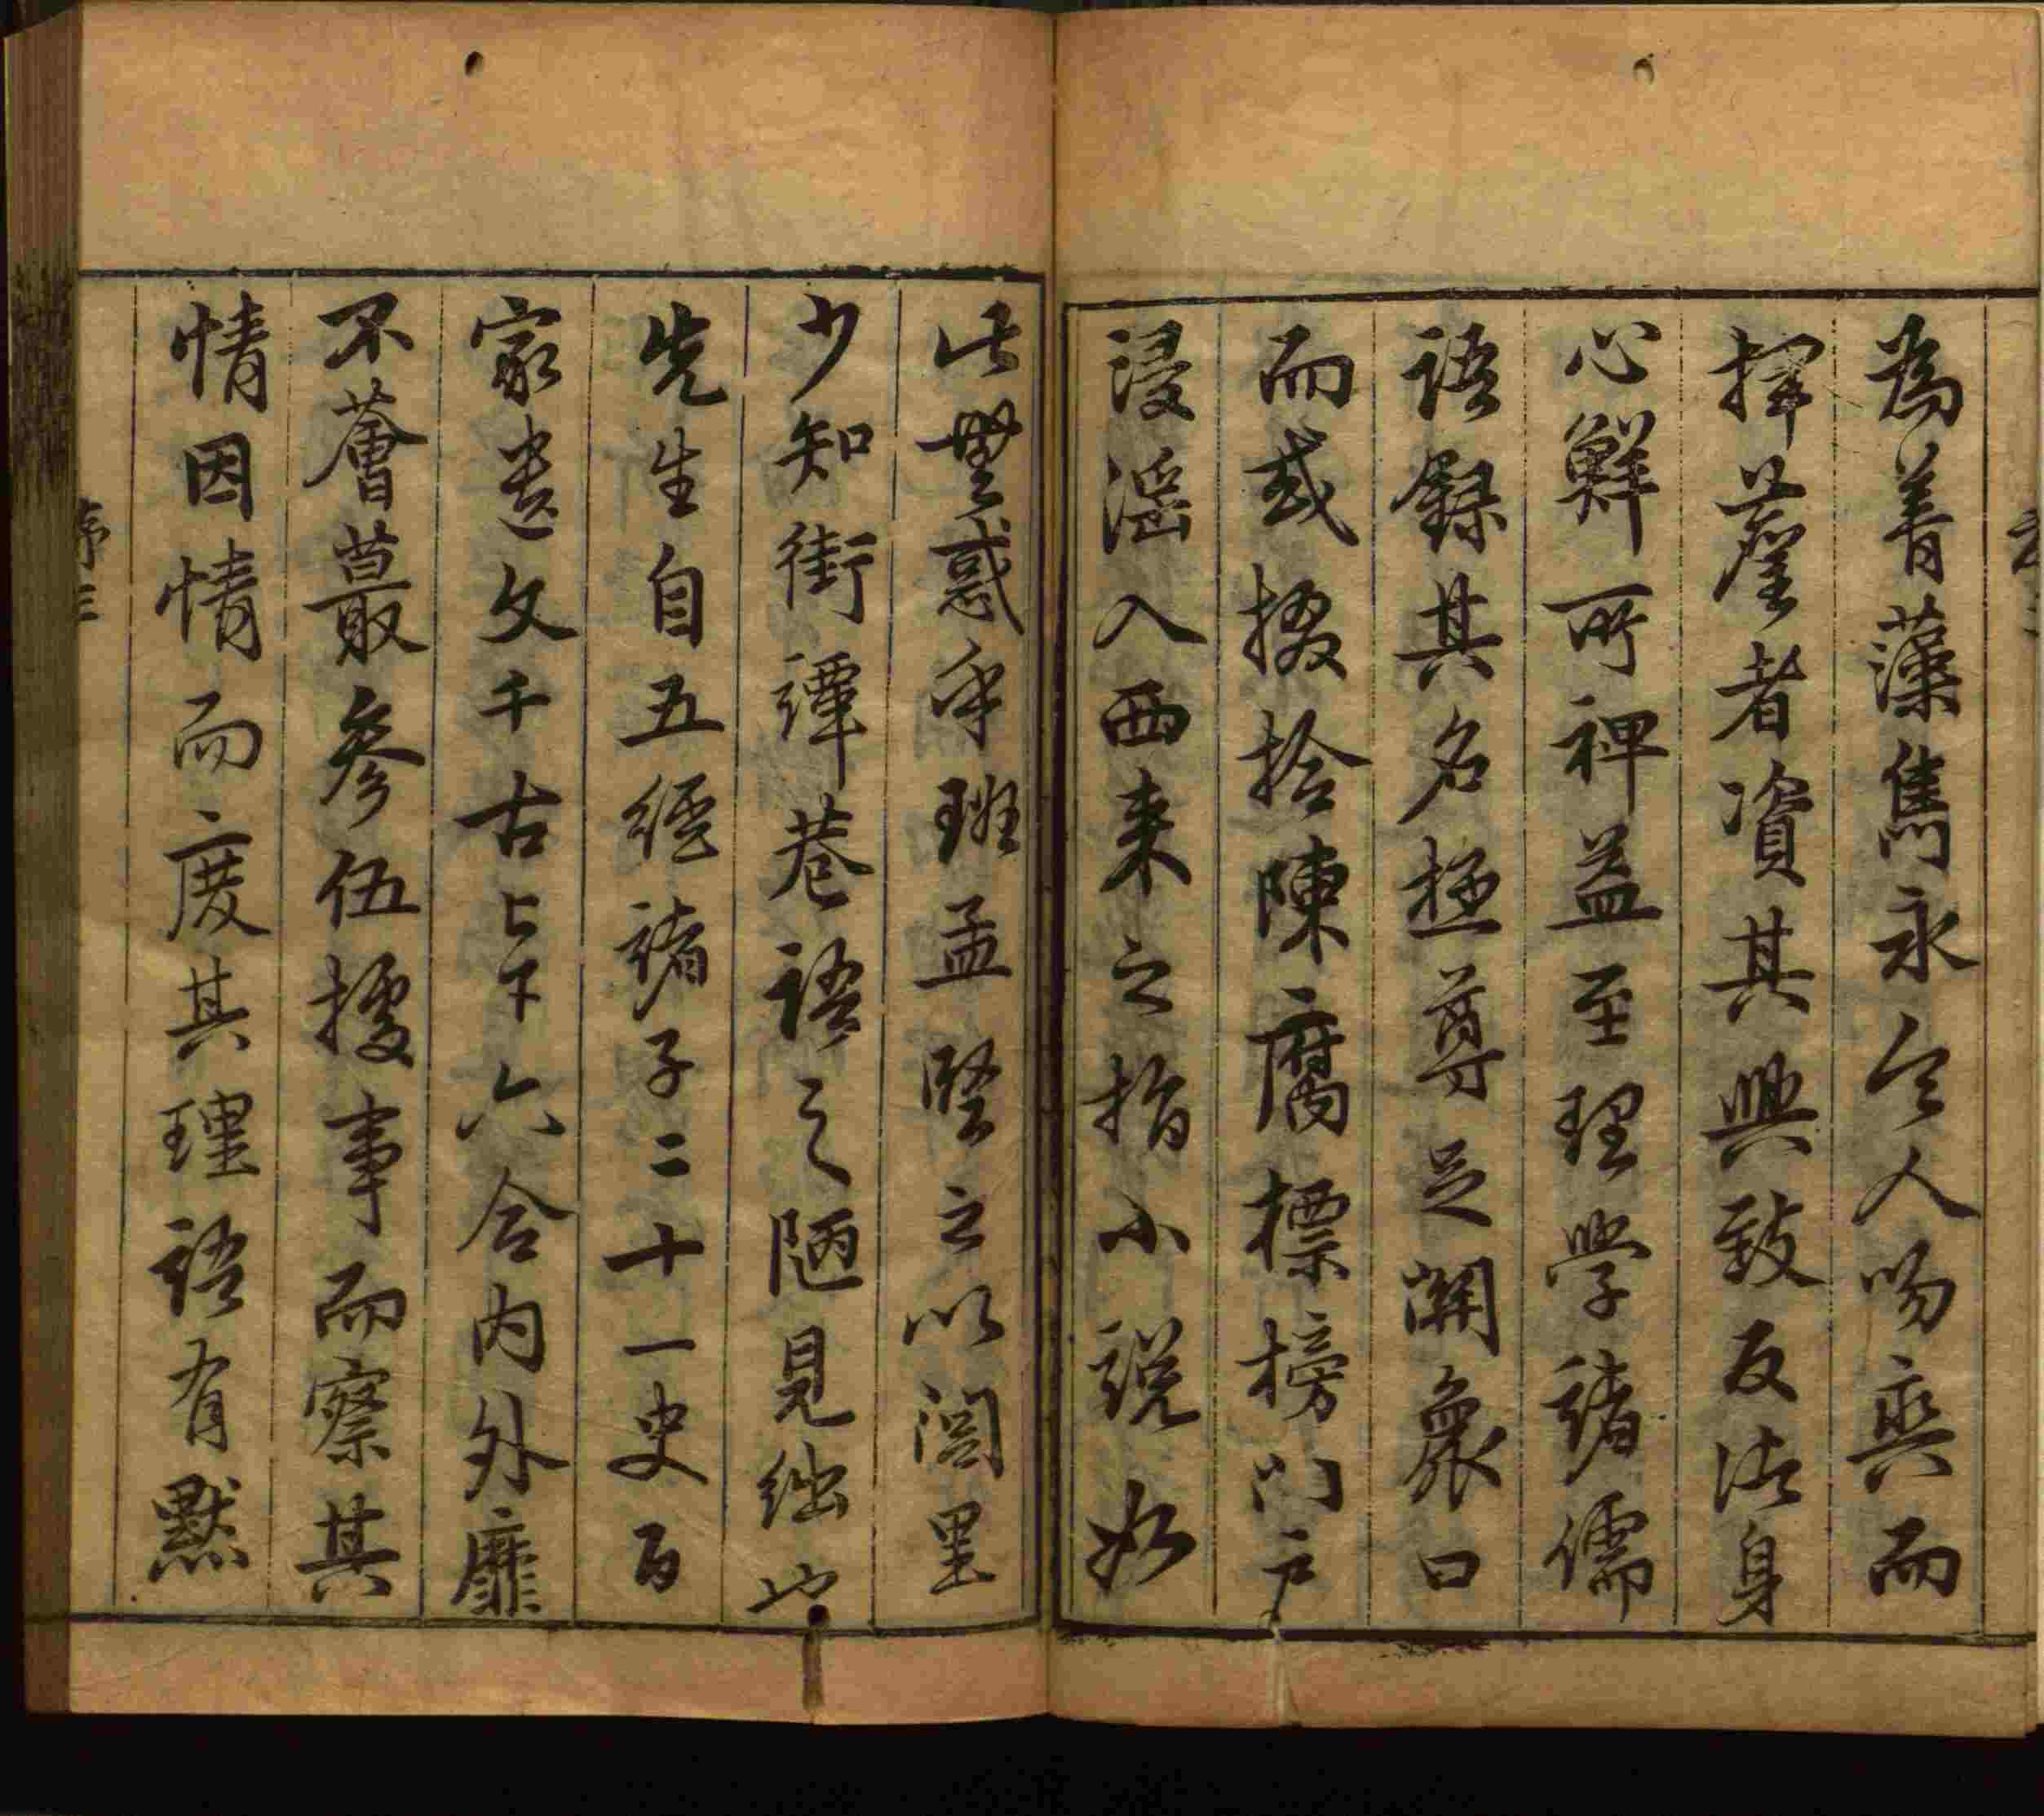 為菁藻雋永令人吻爽而
擇塵者資其興致反沾身
心鮮所裨益至理學諸儒
語錄其名極尊足關眾口
而或掇拾陳腐標榜門戶
浸淫入西來之指小說如
此無惑乎班孟堅之以閭里
少知街譚巷語之陋見絀也
先生自五經諸子二十一史百
家遺文千古上下六合內外靡
不薈蕞參伍據事而察其
情因情而度其理語有默
序三